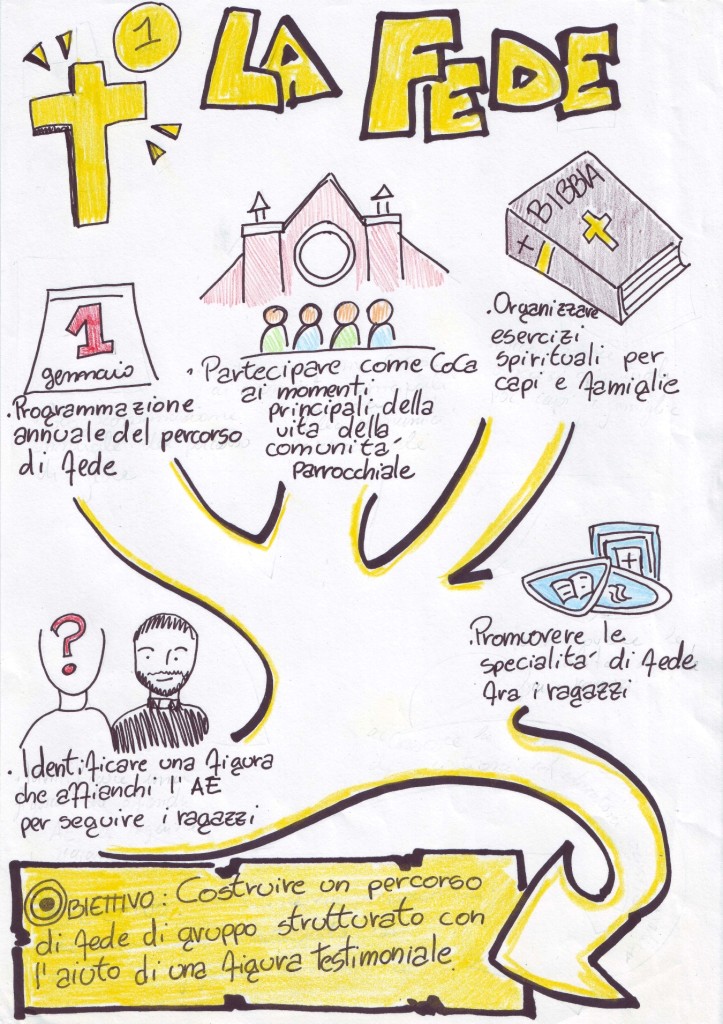 1
LA FEDE
BIBBIA
1
gennaio
. Programmazione
annuale del percorso
di fede
. Partecipare come CoCa
ai momenti
principali della
vita della
comunità
parrocchiale
. Organizzare
esercizi
spirituali per
capi e famiglie
?
. Identificare una figura
che affianchi l'AE
per seguire i ragazzi
. Promuovere le
specialità di fede
fra i ragazzi
OBIETTIVO: Costruire un percorso
di fede di gruppo strutturato con
l'aiuto di una figura testimoniale.